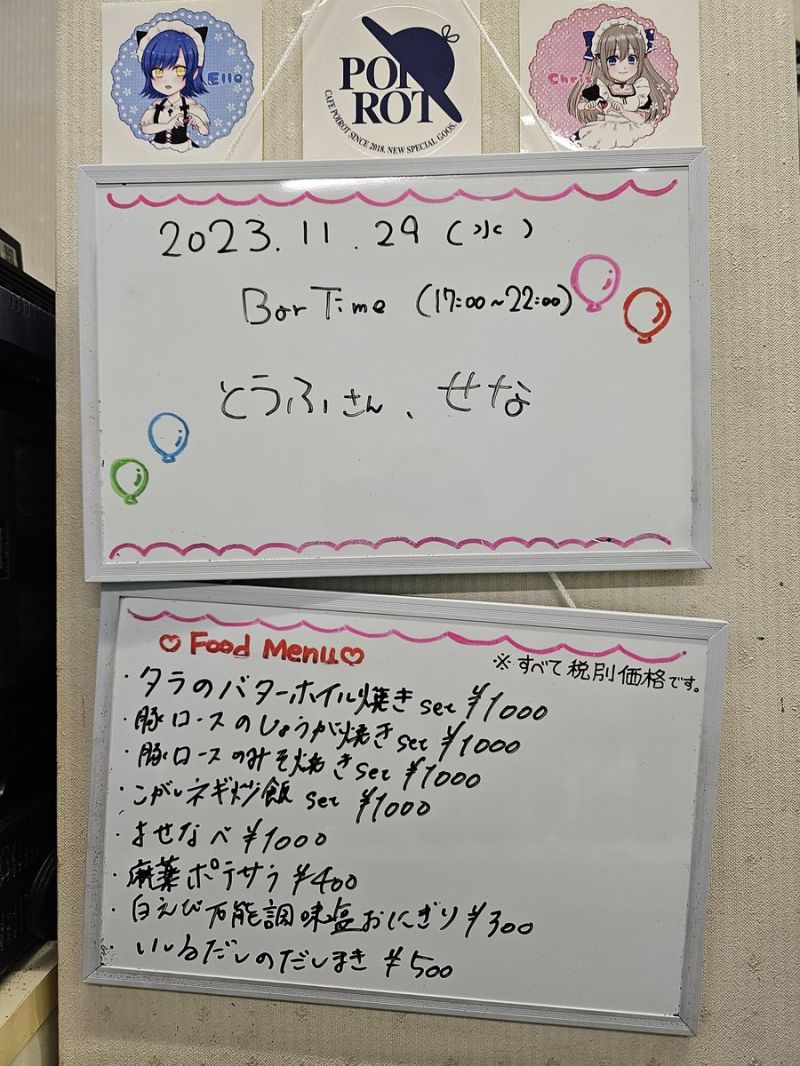 Ella
POI
ROT
CAFE POIROT SINCE 2018. NEW SPECIAL GOOS.
Chris
2023.11.29(水)
Bar Time (17:00~22:00)
とうふさん、せな
♡Food Menu♡
※すべて税別価格です。
・タラのバターホイル焼き set ¥1000
・豚ロースのしょうが焼き set ¥1000
・豚ロースのみそ焼き set ¥1000
・こがしネギ炒飯 set ¥1000
・よせなべ ¥1000
・麻薬ポテサラ ¥400
・白えび万能調味塩おにぎり ¥300
・いしるだしのだしまき ¥500